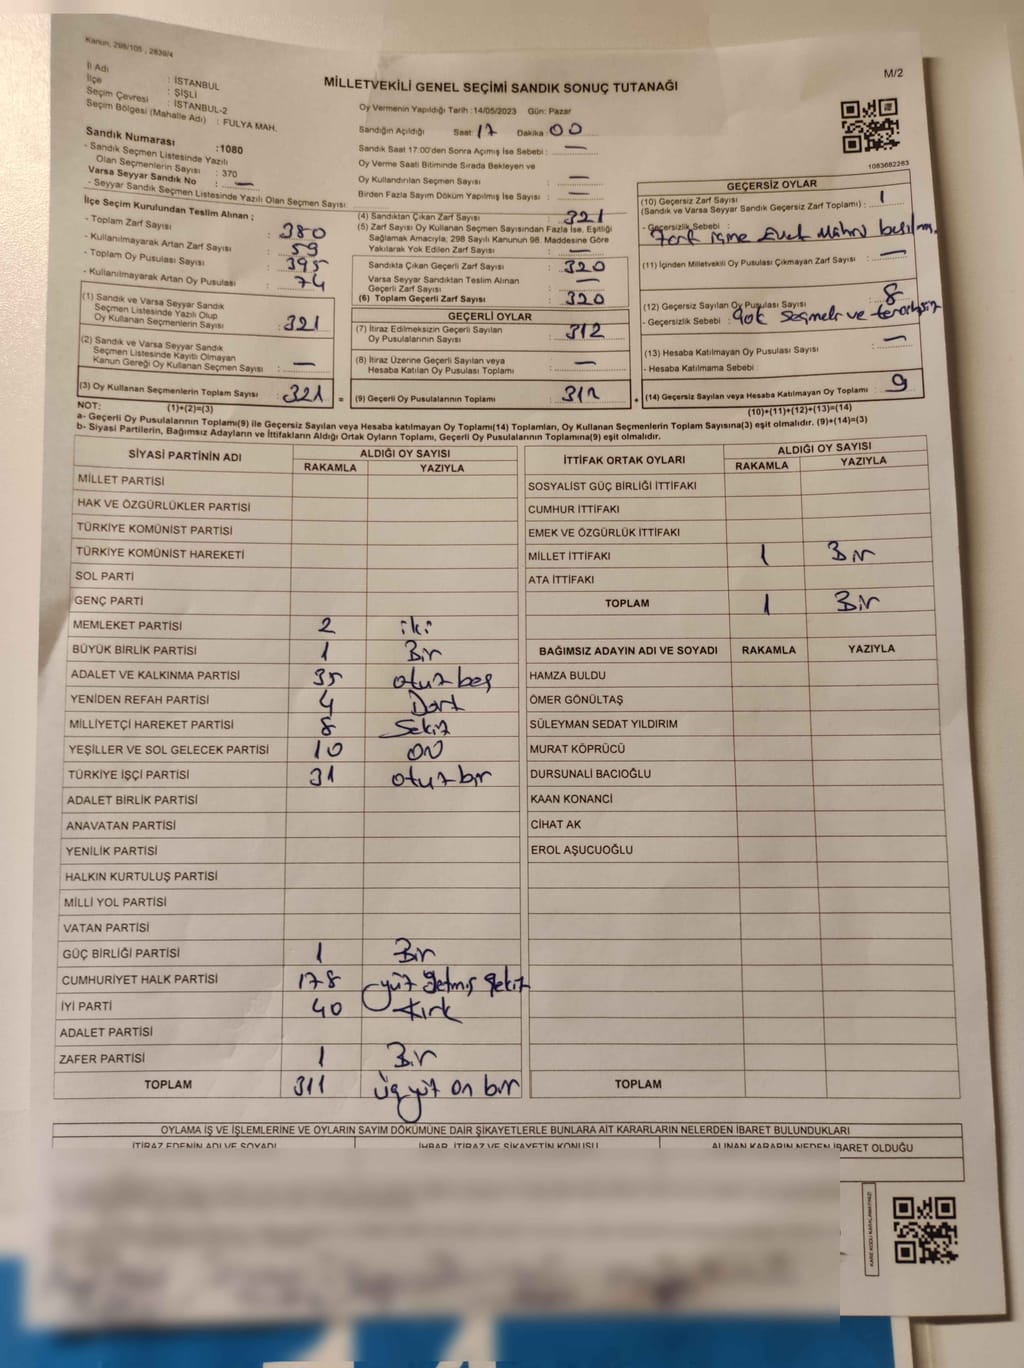 Kanun, 298/105 , 2839/4
İl Adı : İSTANBUL
İlçe : ŞİŞLİ
Seçim Çevresi : İSTANBUL-2
Seçim Bölgesi (Mahalle Adı) : FULYA MAH.
Sandık Numarası :1080
- Sandık Seçmen Listesinde Yazılı
Olan Seçmenlerin Sayısı : 370
Varsa Seyyar Sandık No : —
- Seyyar Sandık Seçmen Listesinde Yazılı Olan Seçmen Sayısı:
MİLLETVEKİLİ GENEL SEÇİMİ SANDIK SONUÇ TUTANAĞI
M/2
Oy Vermenin Yapıldığı Tarih :14/05/2023 Gün: Pazar
Sandığın Açıldığı Saat: 17 Dakika: 00
Sandık Saat 17:00'den Sonra Açımış İse Sebebi : —
Oy Verme Saati Bitiminde Sırada Bekleyen ve
Oy Kullandırılan Seçmen Sayısı : —
Birden Fazla Sayım Döküm Yapılmış İse Sayısı : —
1083682263
İlçe Seçim Kurulundan Teslim Alınan ;
- Toplam Zarf Sayısı : 380
- Kullanılmayarak Artan Zarf Sayısı : 59
- Toplam Oy Pusulası Sayısı : 395
- Kullanılmayarak Artan Oy Pusulası : 74
(1) Sandık ve Varsa Seyyar Sandık
Seçmen Listesinde Yazılı Olup
Oy Kullanan Seçmenlerin Sayısı : 321
(2) Sandık ve Varsa Seyyar Sandık
Seçmen Listesinde Kayıtlı Olmayan
Kanun Gereği Oy Kullanan Seçmen Sayısı : —
(3) Oy Kullanan Seçmenlerin Toplam Sayısı : 321
(4) Sandıktan Çıkan Zarf Sayısı : 321
(5) Zarf Sayısı Oy Kullanan Seçmen Sayısından Fazla İse, Eşitliği
Sağlamak Amacıyla, 298 Sayılı Kanunun 98. Maddesine Göre
Yakılarak Yok Edilen Zarf Sayısı : —
Sandıkta Çıkan Geçerli Zarf Sayısı : 320
Varsa Seyyar Sandıktan Teslim Alınan
Geçerli Zarf Sayısı : —
(6) Toplam Geçerli Zarf Sayısı : 320
GEÇERLİ OYLAR
(7) İtiraz Edilmeksizin Geçerli Sayılan
Oy Pusulalarının Sayısı : 312
(8) İtiraz Üzerine Geçerli Sayılan veya
Hesaba Katılan Oy Pusulası Toplamı : —
= (9) Geçerli Oy Pusulalarının Toplamı : 312
GEÇERSİZ OYLAR
(10) Geçersiz Zarf Sayısı
(Sandık ve Varsa Seyyar Sandık Geçersiz Zarf Toplamı) : 1
- Geçersizlik Sebebi : Evet Mührü
(11) İçinden Milletvekili Oy Pusulası Çıkmayan Zarf Sayısı : —
(12) Geçersiz Sayılan Oy Pusulası Sayısı : 8
- Geçersizlik Sebebi : ve
(13) Hesaba Katılmayan Oy Pusulası Sayısı : —
- Hesaba Katılmama Sebebi :
+ (14) Geçersiz Sayılan veya Hesaba Katılmayan Oy Toplamı : 9
NOT: (1)+(2)=(3) (10)+(11)+(12)+(13)=(14)
a- Geçerli Oy Pusulaların Toplamı(9) ile Geçersiz Sayılan veya Hesaba katılmayan Oy Toplamı(14) Toplamları, Oy Kullanan Seçmenlerin Toplam Sayısına(3) eşit olmalıdır. (9)+(14)=(3)
b- Siyasi Partilerin, Bağımsız Adayların ve İttifakların Aldığı Ortak Oyların Toplamı, Geçerli Oy Pusulalarının Toplamına(9) eşit olmalıdır.
SİYASİ PARTİNİN ADI ALDIĞI OY SAYISI
RAKAMLA YAZIYLA
MİLLET PARTİSİ
HAK VE ÖZGÜRLÜKLER PARTİSİ
TÜRKİYE KOMÜNİST PARTİSİ
TÜRKİYE KOMÜNİST HAREKETİ
SOL PARTİ
GENÇ PARTİ
MEMLEKET PARTİSİ 2 iki
BÜYÜK BİRLİK PARTİSİ 1 Bir
ADALET VE KALKINMA PARTİSİ 35 otuz beş
YENİDEN REFAH PARTİSİ 4 Dört
MİLLİYETÇİ HAREKET PARTİSİ 8 Sekiz
YEŞİLLER VE SOL GELECEK PARTİSİ 10 ON
TÜRKİYE İŞÇİ PARTİSİ 31 otuz bir
ADALET BİRLİK PARTİSİ
ANAVATAN PARTİSİ
YENİLİK PARTİSİ
HALKIN KURTULUŞ PARTİSİ
MİLLİ YOL PARTİSİ
VATAN PARTİSİ
GÜÇ BİRLİĞİ PARTİSİ 1 Bir
CUMHURİYET HALK PARTİSİ 178 yüz yetmiş sekiz
İYİ PARTİ 40 Kırk
ADALET PARTİSİ
ZAFER PARTİSİ 1 Bir
TOPLAM 311 üç yüz on bir
İTTİFAK ORTAK OYLARI ALDIĞI OY SAYISI
RAKAMLA YAZIYLA
SOSYALİST GÜÇ BİRLİĞİ İTTİFAKI
CUMHUR İTTİFAKI
EMEK VE ÖZGÜRLÜK İTTİFAKI
MİLLET İTTİFAKI 1 Bir
ATA İTTİFAKI
TOPLAM 1 Bir
BAĞIMSIZ ADAYIN ADI VE SOYADI RAKAMLA YAZIYLA
HAMZA BULDU
ÖMER GÖNÜLTAŞ
SÜLEYMAN SEDAT YILDIRIM
MURAT KÖPRÜCÜ
DURSUNALİ BACIOĞLU
KAAN KONANCİ
CİHAT AK
EROL AŞUCUOĞLU
TOPLAM
OYLAMA İŞ VE İŞLEMLERİNE VE OYLARIN SAYIM DÖKÜMÜNE DAİR ŞİKAYETLERLE BUNLARA AİT KARARLARIN NELERDEN İBARET BULUNDUKLARI
İTİRAZ EDENİN ADI VE SOYADI İHBAR, İTİRAZ VE ŞİKAYETİN KONUSU ALINAN KARARIN NEDEN İBARET OLDUĞU